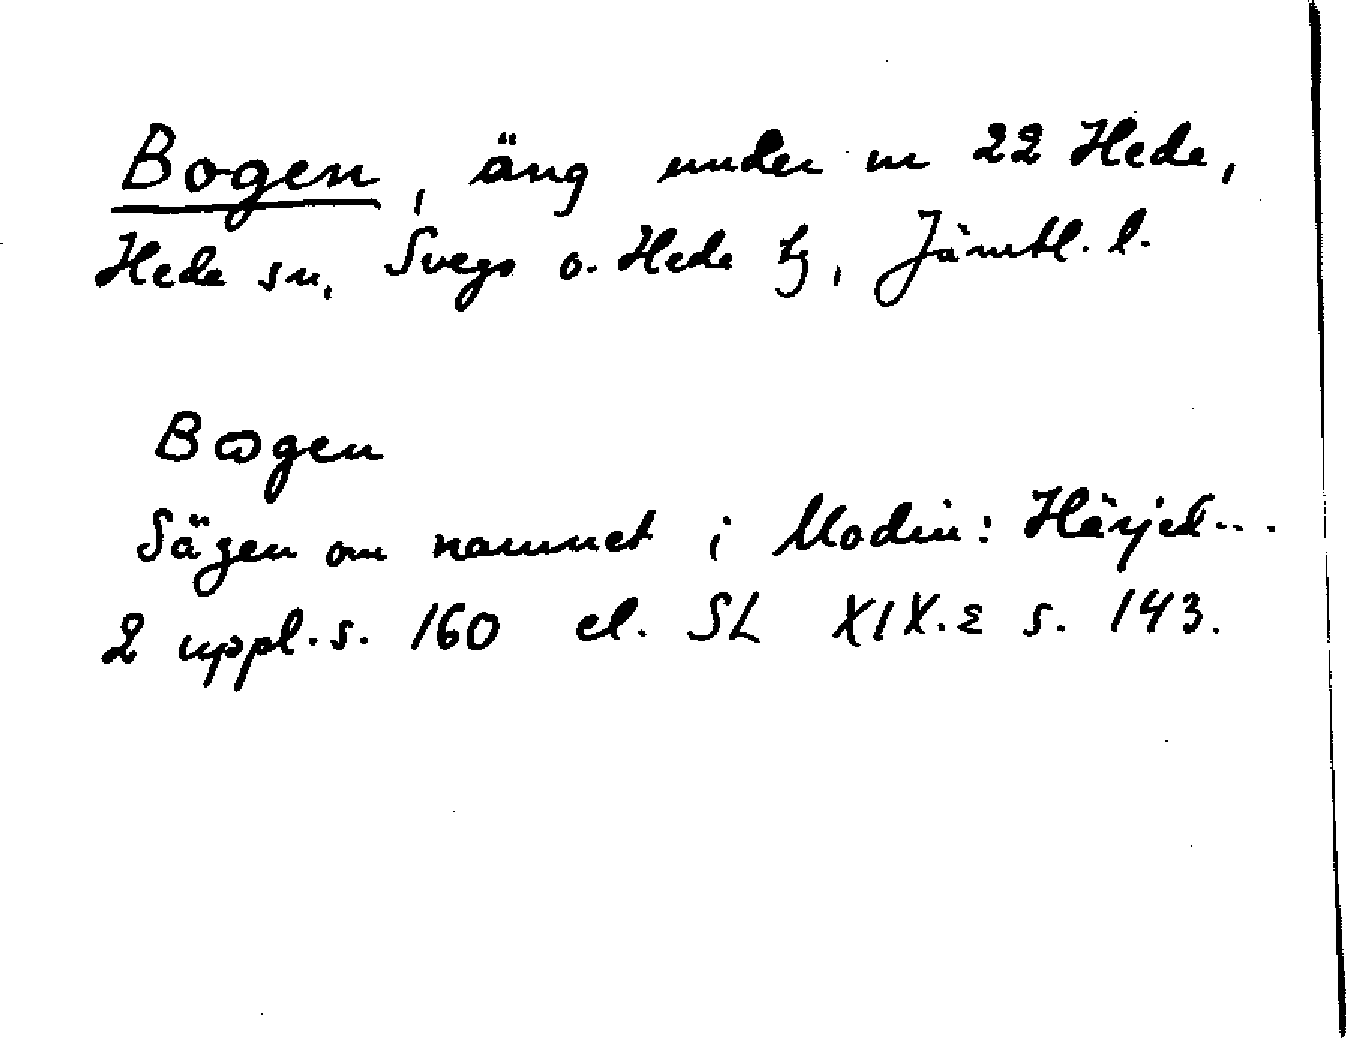 Bogen, äng under nr 22 Hede,
Hede sn, Svegs o. Hede tg, Jämtl. l.
Bogen
Sägen om namnet i Modin: Härjed...
2 uppl. s. 160 el. SL XIX.2 s. 143.